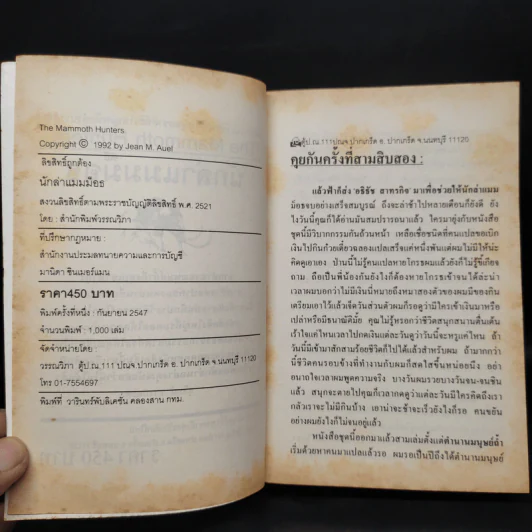 The Mammoth Hunters.
Copyright © 1992 by Jean M. Auel
ลิขสิทธิ์ถูกต้อง
นักล่าแมมม๊อธ
สงวนลิขสิทธิ์ตามพระราชบัญญัติลิขสิทธิ์ พ.ศ. 2521
โดย : สำนักพิมพ์วรรณวิภา
ที่ปรึกษากฎหมาย :
สำนักงานประมลทนายความและการบัญชี
มานิตา ชินเมอร์แมน
ราคา450 บาท
พิมพ์ครั้งที่หนึ่ง : กันยายน 2547
จำนวนพิมพ์ : 1,000 เล่ม
จัดจำหน่ายโดย :
วรรณวิภา ตู้ป.ณ. 111 ปณจ ปากเกร็ด อ. ปากเกร็ด จ.นนทบุรี 11120
โทร 01-7554697
พิมพ์ที่ วารินทร์พับลิเคชั่น คลองสาน กทม.
ตู้ป.ณ.111 ปณจ.ปากเกร็ด อ. ปากเกร็ด จ.นนทบุรี 11120
คุยกันครั้งที่สามสิบสอง :
แล้วฟ้าก็ส่ง มาเพื่อช่วยให้นักล่าแมม
ม๊อธจบอย่างเสร็จสมบูรณ์ ถึงจะล่าช้าไปหลายเดือนก็ยังดี ยัง
ไงวันนี้คุณก็ได้อ่านมันสมปรารถนาแล้ว ใครมายุ่งกับหนังสือ
ชุดนี้มีวิบากกรรมกันถ้วนหน้า เหลือเชื่อชนิดที่คนแปลขอเบิก
เงินไปกินก๋วยเตี๋ยวฉลองแปลเสร็จแค่หนึ่งพันแต่ผมไม่มีให้น่ะ
คิดดูเอาเอง ป่านนี้ไม่รู้คนแปลหายโกรธผมแล้วยังก็ไม่รู้
ถาม ถือเป็นพี่น้องกันยังไงก็ต้องหายโกรธเข้าจนได้ล่ะน่า
เวลาผมบอกว่าไม่มีเงินนี่หมายถึงหมาสองตัวของผมมีของกิน
เตรียมเอาไว้แล้วเจ็ดวันส่วนตัวผมก็รอดูว่ามีใครเข้าเงินมาหรือ
เปล่าหรือมีธนาณัติมั้ย คุณไม่รู้หรอกว่าชีวิตสนุกสนานตื่นเต้น
เร้าใจแค่ไหนเวลาไปกดเงินแต่ละวันดูว่าวันนี้จะหรูแค่ไหน ถ้า
วันนี้มีเข้ามาสักสามร้อยชีวิตก็ไปได้แล้วสำหรับผม ถ้ามากกว่า
นี้ชีวิตคนรอบข้างที่ทำงานกับผมก็สดใสขึ้นหน่อยนึง อย่า
อนาถใจเวลาผมพูดความจริง บางวันผมรวยบางวันจน-จนชิน
แล้ว สนุกจะตายไปคุณก็เวลากดดูว่าแต่ละวันมีใครคิดถึงเรา
กลัวเราจะไม่มีกินบ้าง เอาน่าจะช้าจะเร็วยังไงก็รอ คนขยัน
อย่างผมยังไงก็ไม่จนอยู่แล้ว
หนังสือชุดนี้ออกมาแล้วสามเล่มตั้งแต่ตำนานมนุษย์ถ้ำ
เริ่มด้วยหาคนมาแปลแล้วรอ ผมรอเป็นปีถึงได้ตำนานมนุษย์